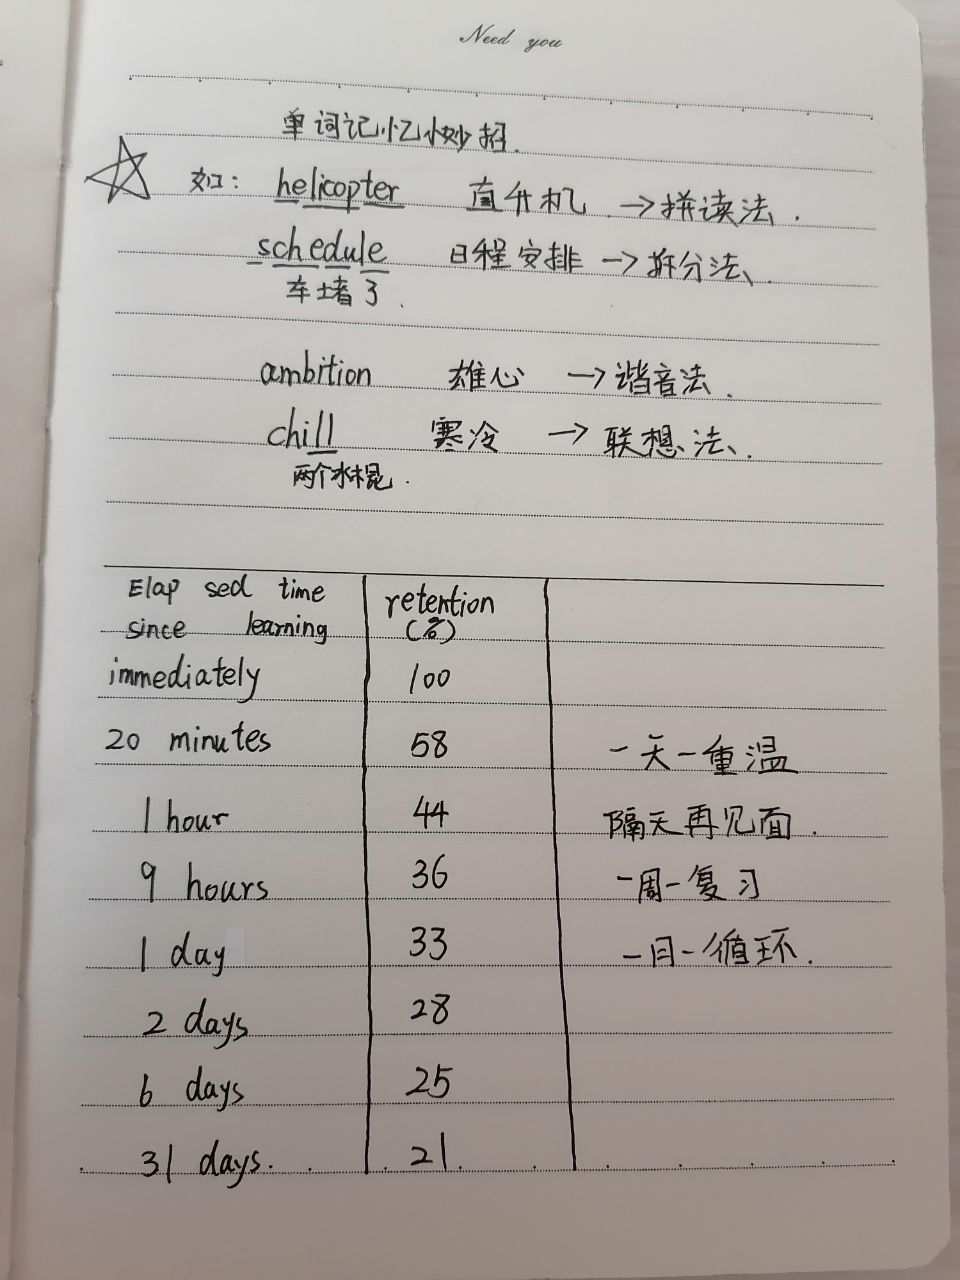 Need you
单词记忆小妙招.
如: helicopter 直升机 →拼读法.
schedule 日程安排 →拆分法、
车堵了.
ambition 雄心 →谐音法.
chill 寒冷 →联想法、.
两个冰棍.
Elap sed time
since learning retention
(%)
immediately 100
20 minutes 58 一天一重温
1 hour 44 隔天再见面.
9 hours 36 一周一复习
1 day 33 一月一循环.
2 days 28
6 days 25
31 days. 21.